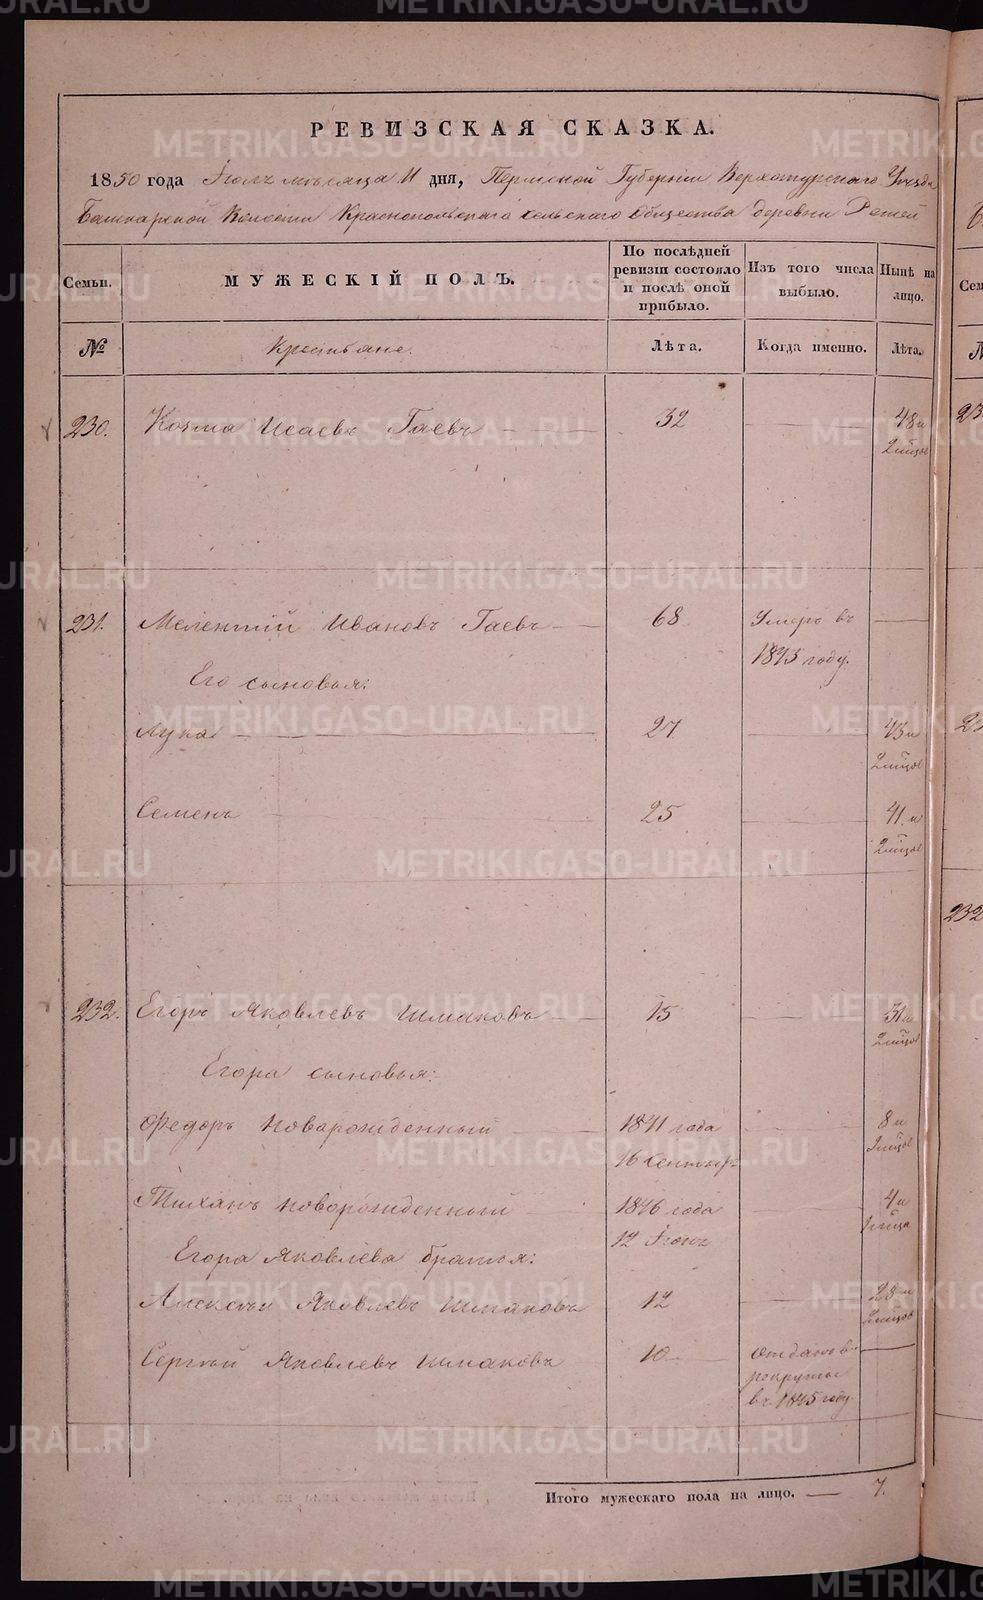 РЕВИЗСКАЯ СКАЗКА.
1850 года Іюля мѣсяца 11 дня, Пермской Губерніи Верхотурскаго Уѣзда
Башкарской Волости Краснопольскаго сельскаго Общества деревни Ретей
Семьи. МУЖЕСКІЙ ПОЛЪ. По послѣдней ревизіи состояло и послѣ оной прибыло. Изъ того числа выбыло. Нынѣ на лицо.
№ Крестьяне. Лѣта. Когда именно. Лѣта.
230. Козма Исаевъ Гаевъ 32 48 и
2 мѣсяц
231. Мелентій Ивановъ Гаевъ 68 Умеръ въ
1845 году.
Его сыновья:
Лука 27 43 и
2 мѣсяц
Семенъ 25 41 и
2 мѣсяц
232. Егоръ Яковлевъ Шмаковъ 15 31 и
2 мѣсяц
Егора сыновья:
Федоръ новарожденный 1841 года 8 и
16 Сентяр 9 мѣсяц
Тиханъ новорожденный 1846 года 4 и
12 Іюня 1 мѣсяца
Егора Яковлева братья:
Алексѣй Яковлевъ Шмаковъ 12 28 и
2 мѣсяц
Сергѣй Яковлевъ Шмаковъ 10 отданъ въ
рекруты
въ 1845 году.
Итого мужескаго пола на лицо. 7.
METRIKI.GASO-URAL.RU